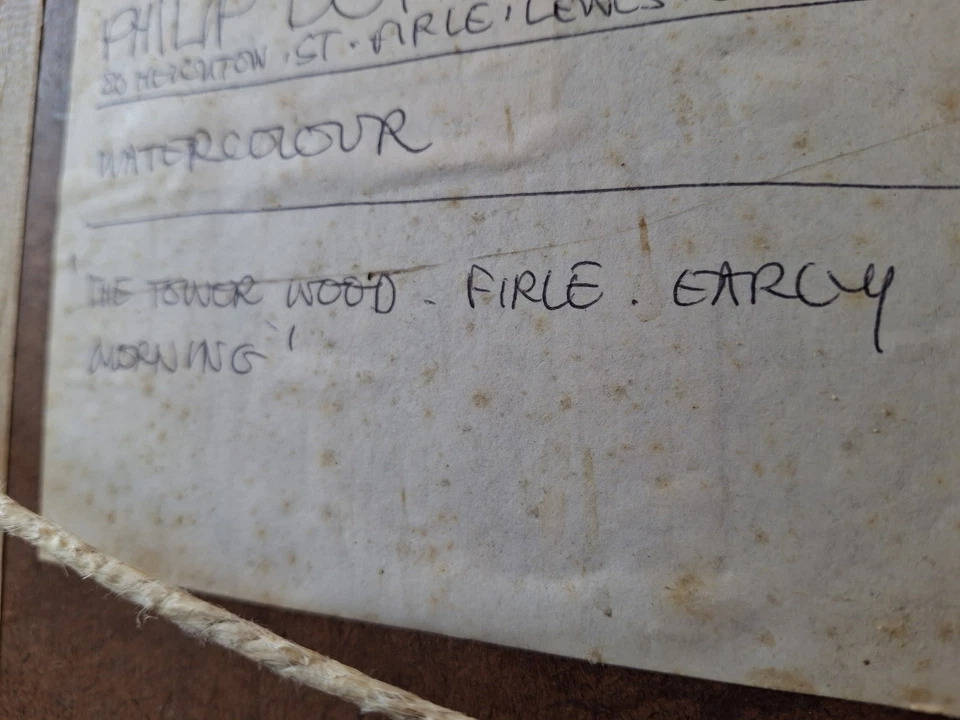 PHILIP
80 HEIGHTON . ST . FIRLE , LEWES
WATERCOLOUR
'THE TOWER WOOD - FIRLE . EARLY
MORNING'